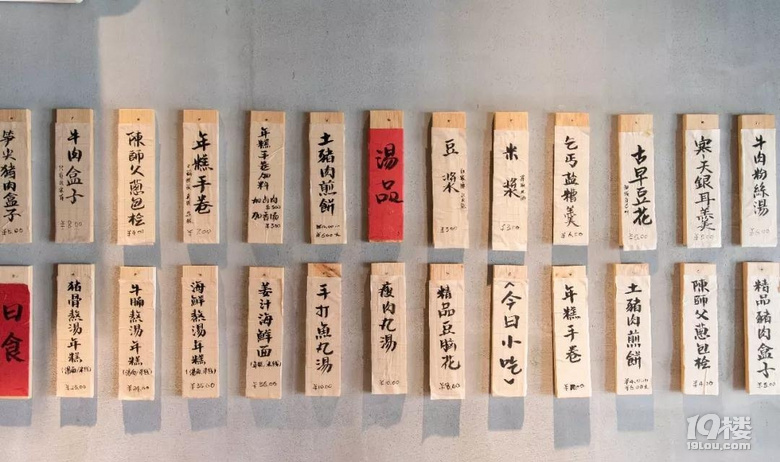 笋尖豬肉盒子
¥5.00
牛肉盒子
¥8.00
陳師父蔥包桧
¥4.00
年糕手卷
年糕手卷加料
土豬肉煎餅
湯品
豆漿
¥3.00
米漿
¥3.00
乞丐盐糟羹
¥6.00
古早豆花
寒天銀耳羹
¥5.00
牛肉粉絲湯
日食
豬骨熬湯年糕
牛腩熬湯年糕
海鮮熬湯年糕
姜汁海鮮面
手打魚丸湯
¥10.00
瘦肉丸湯
精品豆腦花
¥8.00
(今日小吃)
年糕手卷
土豬肉煎餅
陳師父蔥包桧
¥4.00
精品豬肉盒子
¥5.00
19楼
19lou.com